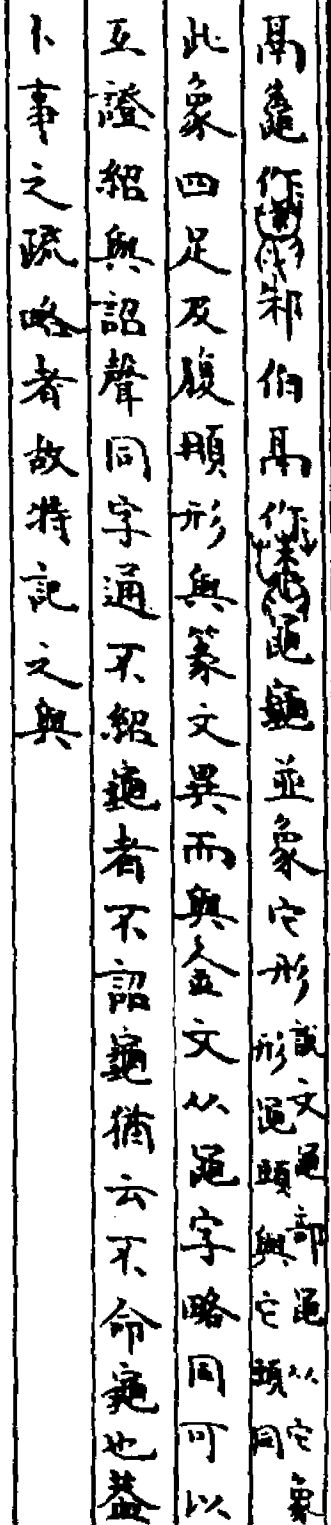 鬲鼄作邾伯鬲作黽鼄並象它形說文黽部黽从它象形黽頭與它頭同
此象四足及腹順形與篆文異而與金文从黽字略同可以
互證紹與詔聲同字通不紹龜者不詔龜猶云不命龜也葢
卜事之疏略者故特記之與